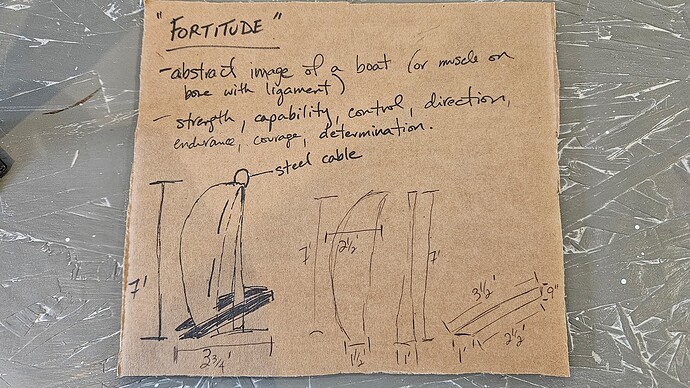 "FORTITUDE"
- abstract image of a boat (or muscle on
bone with ligament)
- strength, capability, control, direction,
endurance, courage, determination.
steel cable
7'
3 3/4'
7'
2 1/2
1 1/2'
7'
1'
3 1/2'
9"
1'
2 1/2'